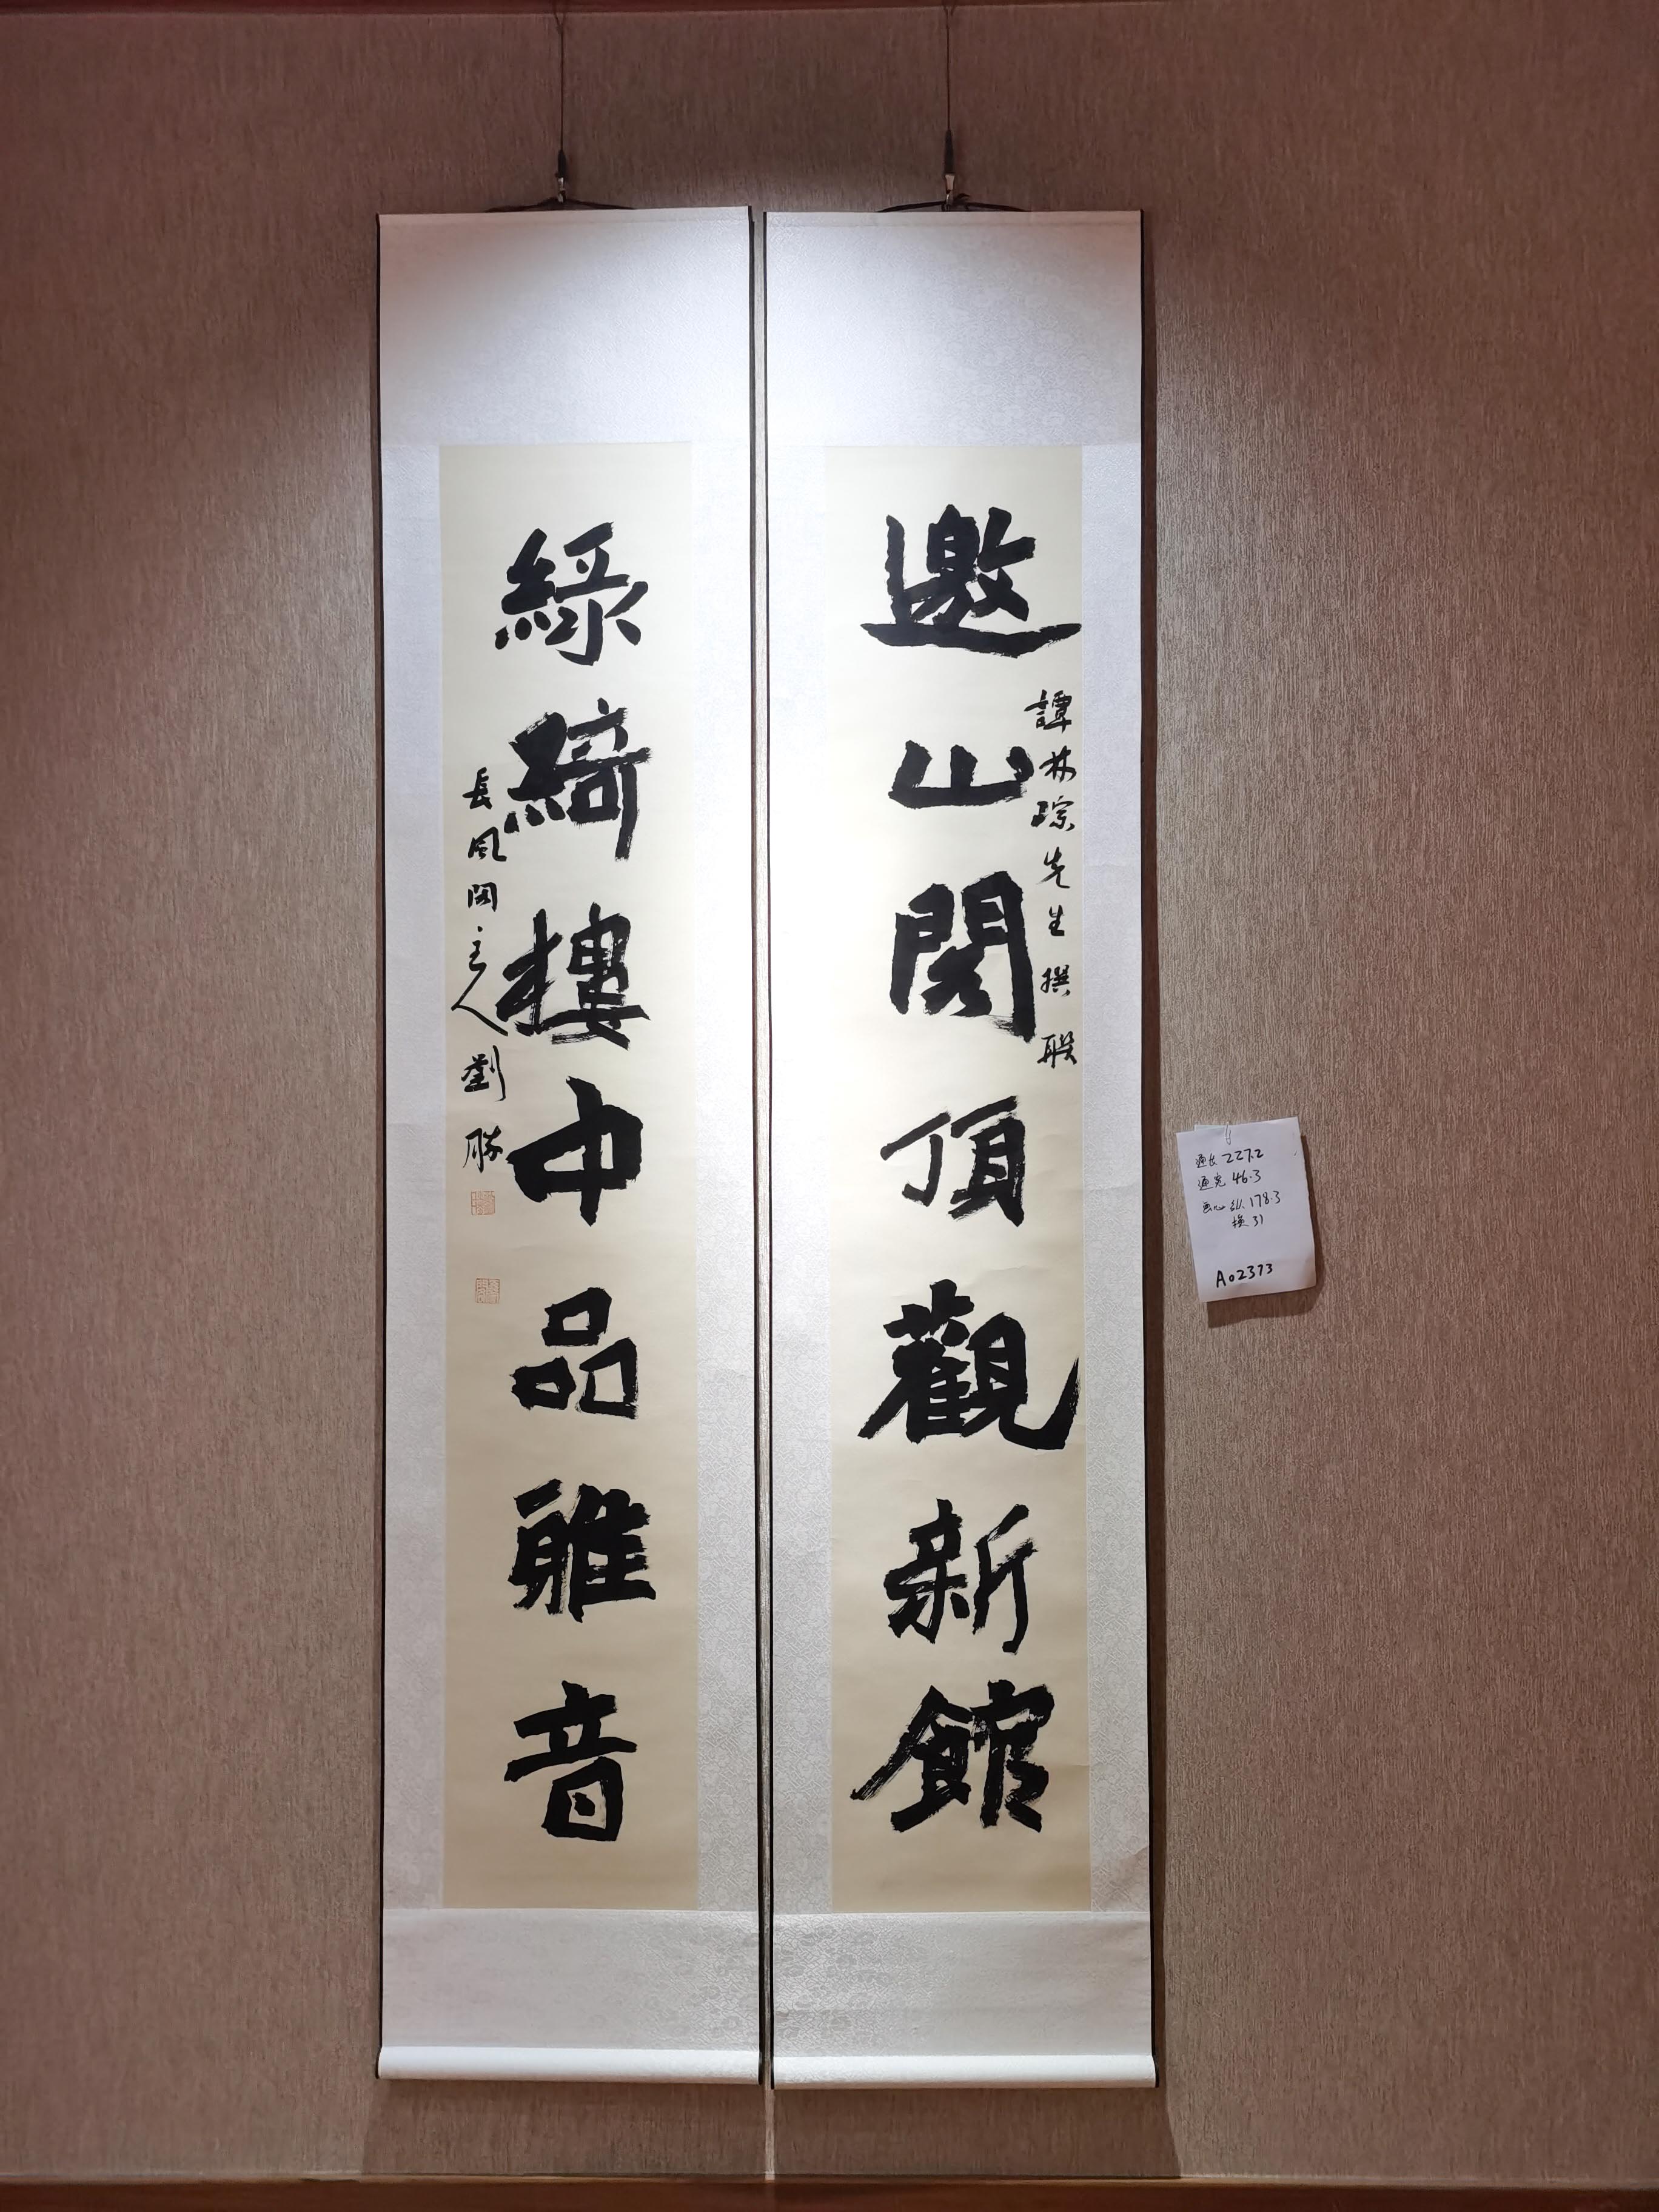 邀山閣頂觀新館
譚林琮先生撰联
綠綺樓中品雅音
長風閣主人劉勝
通长 227.2
通宽 46.3
画心 纵 178.3
横 31
A02373